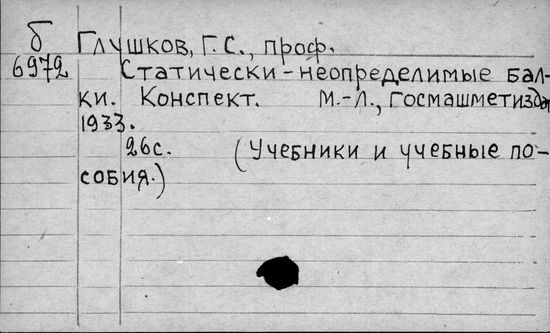 б Глушков, Г.С., проф.
6972 Статически-неопределимые бал-
ки. Конспект. М.-Л., Госмашметиздат
1933.
26с. (Учебники и учебные по-
собия.)